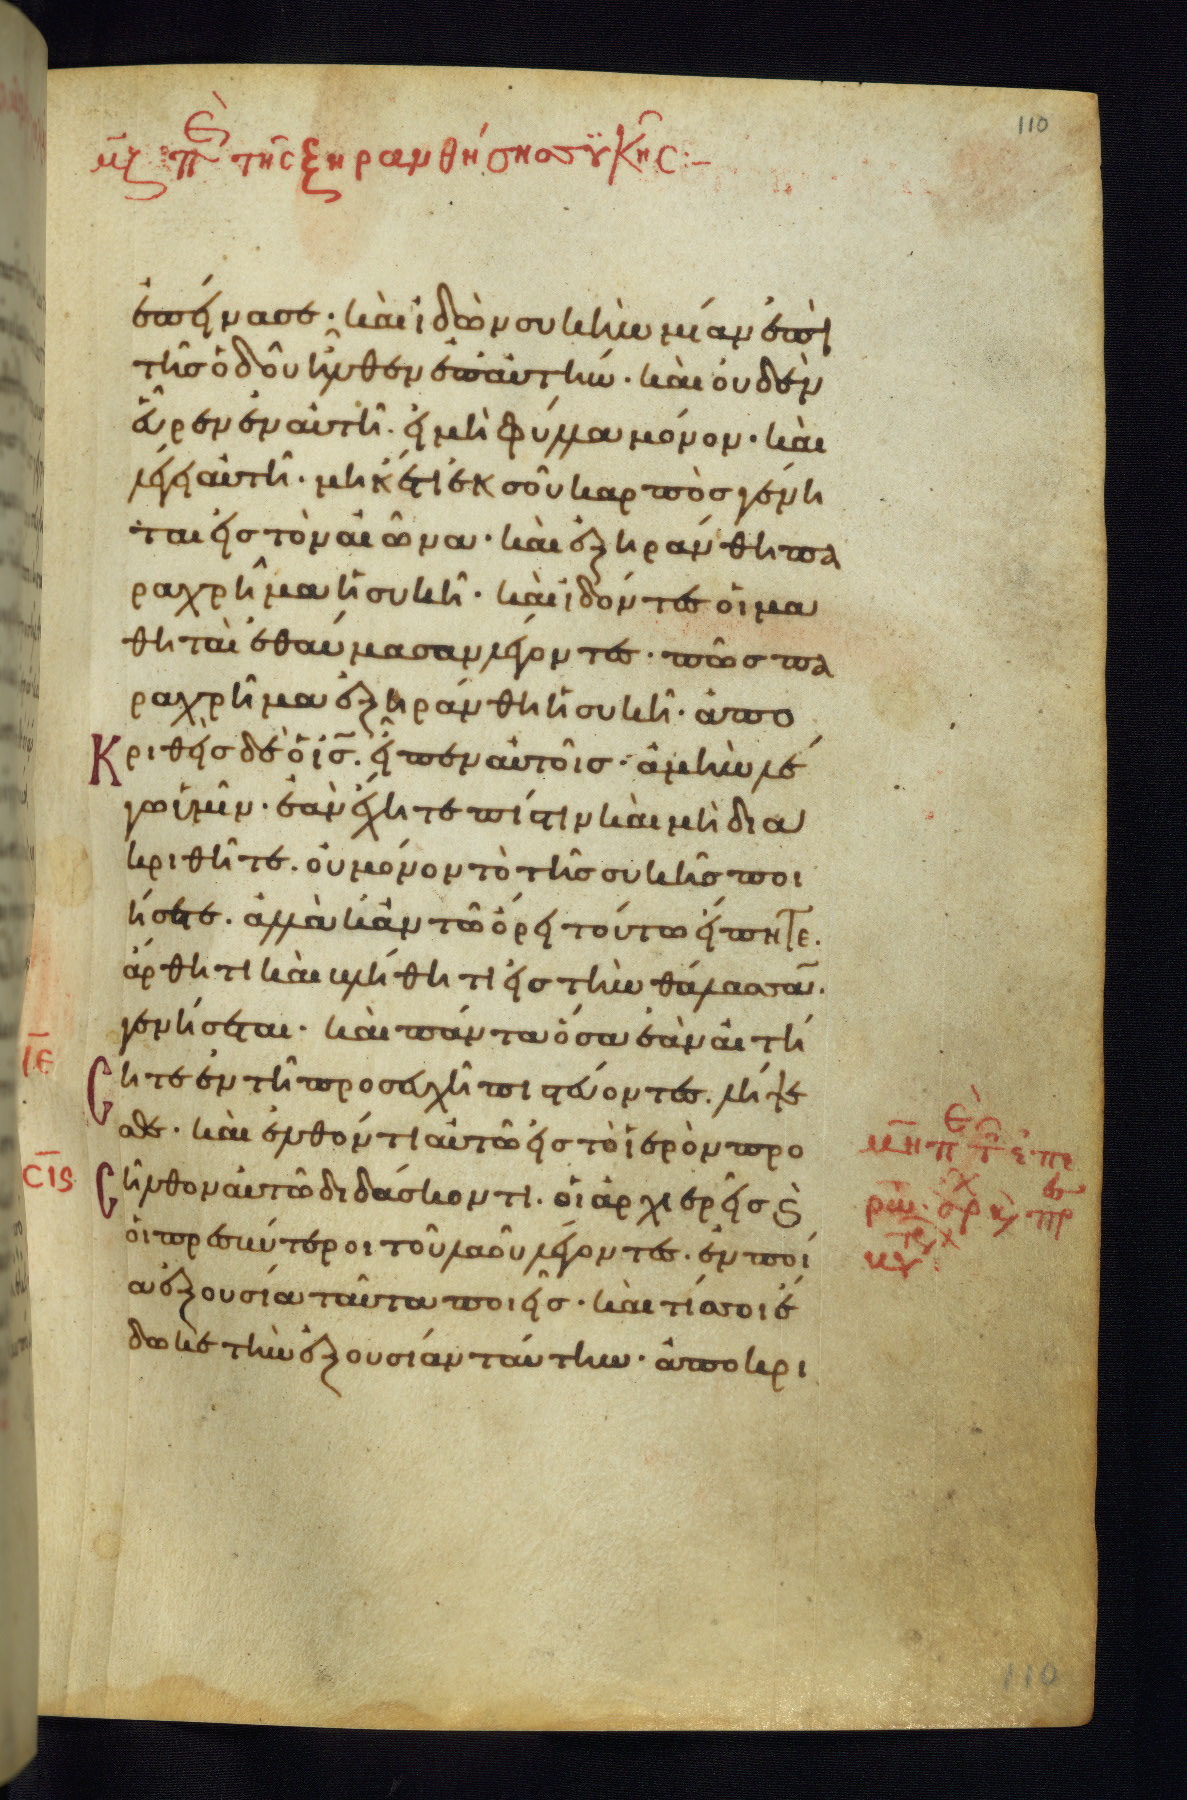 110
μ̄ζ πε τῆς ξηρανθήσησ συκῆς :–
ἐπείνασε · καὶ ἰδὼν συκὴν μίαν ἐπὶ
τῆς ὁδοῦ ἦλθεν ἐπ' αὐτήν · καὶ οὐδὲν
εὗρεν ἐν αὐτῆ · εἰ μὴ φύλλα μόνον · καὶ
λέγει αὐτῆ · μηκέτι ἐκ σοῦ καρπὸς γένη
ται εἰς τὸν αἰῶνα · καὶ ἐξηράνθη πα
ραχρῆμα ἡ συκῆ · καὶ ἰδόντες οἱ μα
θηταὶ ἐθαύμασαν λέγοντες · πῶς πα
ραχρῆμα ἐξηράνθη ἡ συκῆ · ἀπο
Κριθεὶς δὲ ὁ ι̅ς̅ · εἶπεν αὐτοῖς · ἀμὴν λέ
γω ὑμῖν · ἐὰν ἔχητε πίστιν καὶ μὴ δια
κριθῆτε · οὐ μόνον τὸ τῆς συκῆς ποι
ήσετε · ἀλλὰ κἂν τῶ ὄρει τούτω εἴπητε ·
ἄρθητι καὶ βλήθητι εἰς τὴν θάλασσαν̅ ·
γενήσεται · καὶ πάντα ὅσα ἐὰν αἰτή
ι̅ε̅
σητε ἐν τῆ προσευχῆ πιστεύοντες · λήψε
σθε · καὶ ἐλθόντι αὐτῶ εἰς τὸ ἱερὸν προ
σ̅ι̅ς̅
σῆλθον αὐτῶ διδάσκοντι · οἱ ἀρχιερεῖς ϗ
οἱ πρεσβύτεροι τοῦ λαοῦ λέγοντες · ἐν ποί
α ἐξουσία ταῦτα ποιεῖς · καὶ τίς σοι ἔ
δωκε τὴν ἐξουσίαν ταύτην · ἀποκρι
110